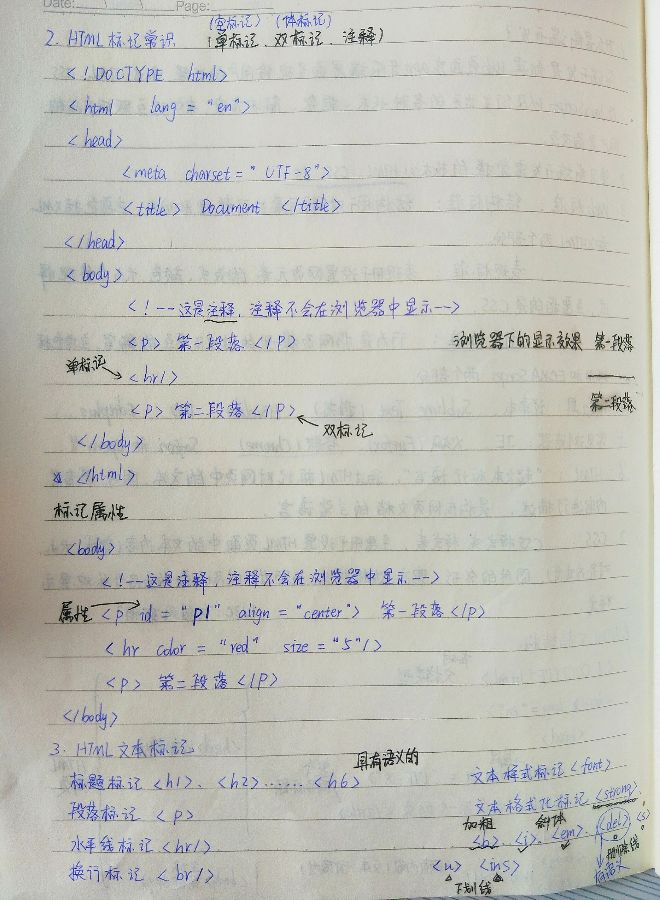 Date: Page:
(空标记) (体标记)
2. HTML 标记常识 (单标记、双标记、注释)
<!DOCTYPE html>
<html lang = "en">
<head>
<meta charset = "UTF-8">
<title> Document </title>
</head>
<body>
<!--这是注释, 注释不会在浏览器中显示-->
<p> 第一段落 </P> 浏览器下的显示效果 第一段落
单标记
<hr/>
<p> 第二段落 </P> 第二段落
双标记
</body>
</html>
标记属性
<body>
<!--这是注释, 注释不会在浏览器中显示-->
属性 <p id = "p1" align = "center"> 第一段落 </p>
<hr color = "red" size = "5"/>
<p> 第二段落 </P>
</body>
3. HTML 文本标记
具有语义的
标题标记 <h1>、<h2>……<h6> 文本样式标记 <font>
段落标记 <p> 文本格式化标记 <strong>
加粗 斜体
水平线标记 <hr/> <b>、<i>、<em>、<del>、<s>
删除线
换行标记 <br/> <u> <ins>
下划线